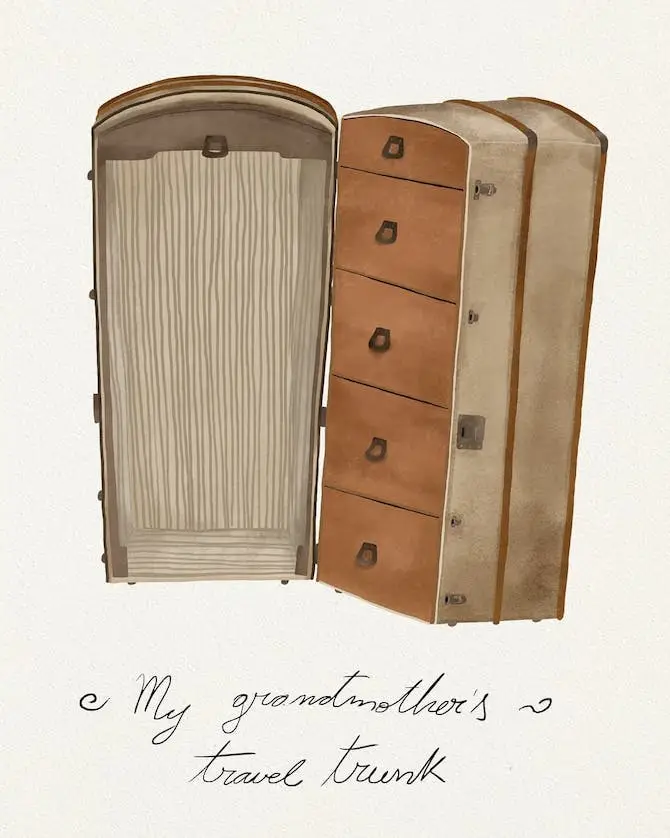 My grandmother's
travel trunk